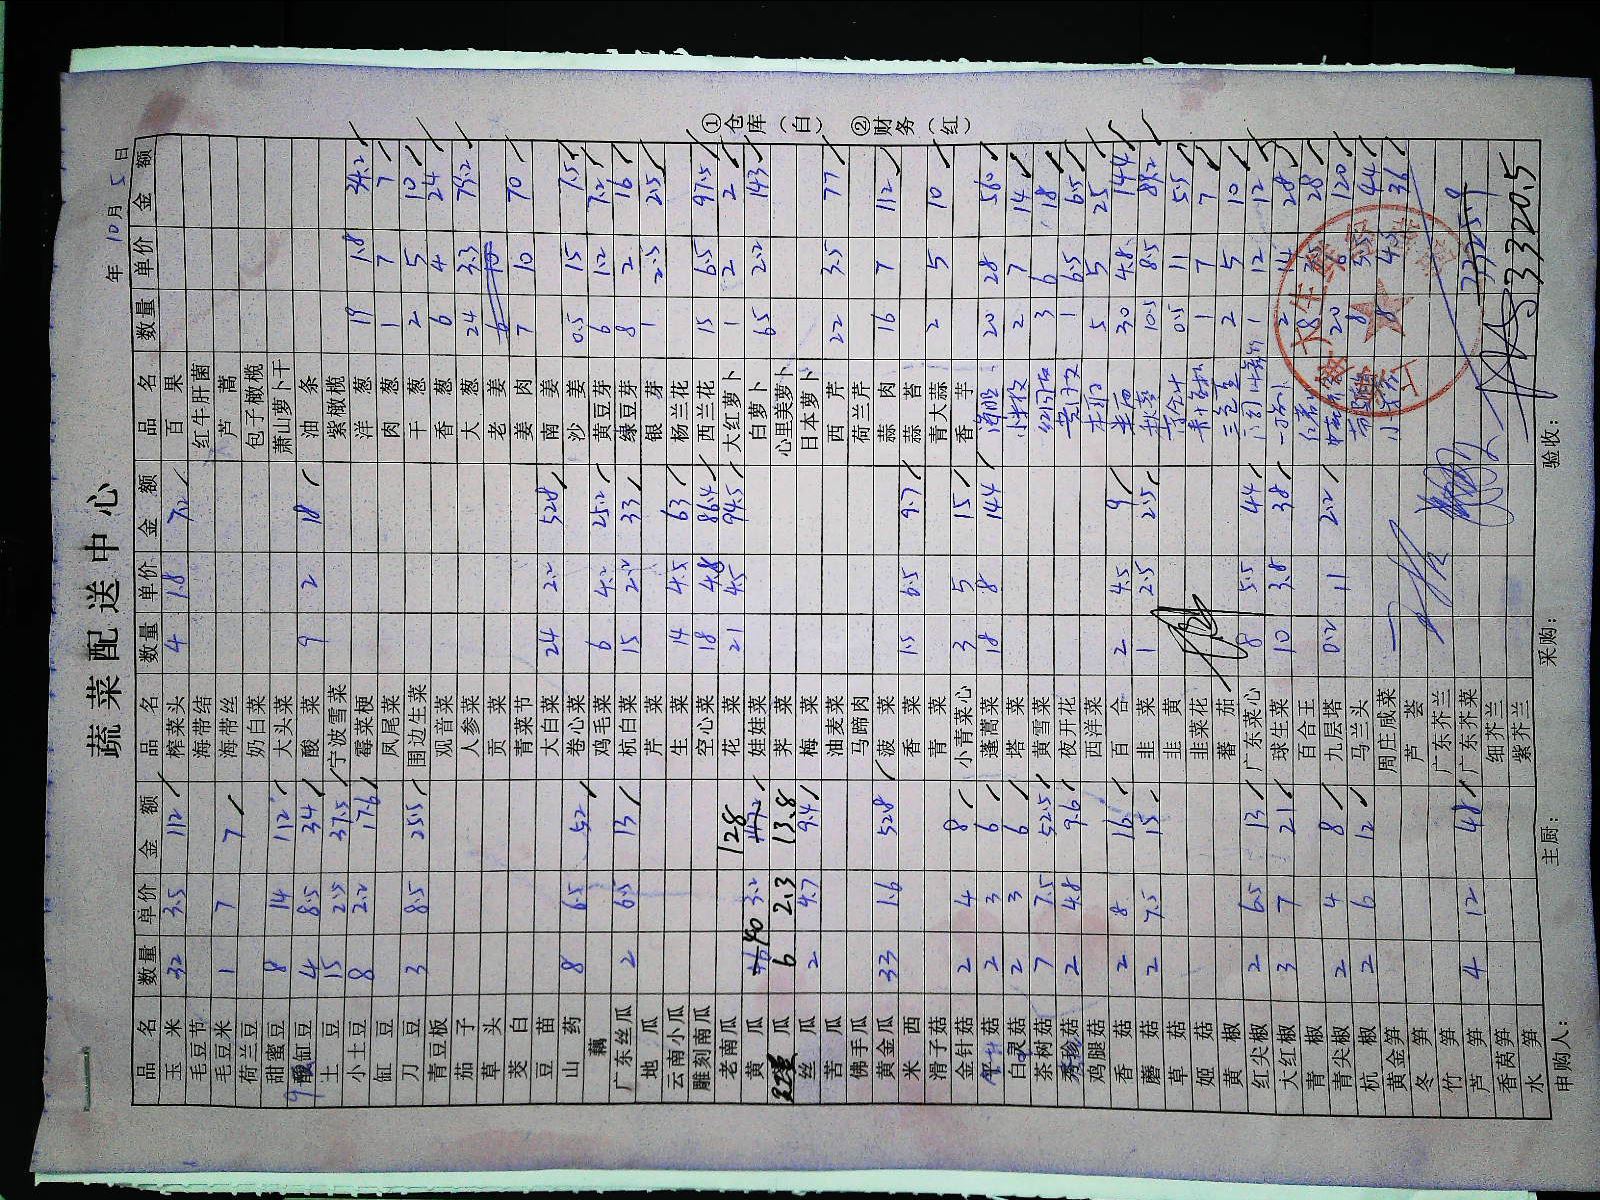 蔬菜配送中心
年 10月 5日
品名 数量 单价 金额 品名 数量 单价 金额 品名 数量 单价 金额
玉米 32 3.5 112 榨菜头 4 1.8 7.2 百果
毛豆节 海带结 红牛肝菌
毛豆米 1 7 7 海带丝 芦蒿
荷兰豆 奶白菜 包子橄榄
甜蜜豆 8 14 112 大头菜 萧山萝卜干
酸缸豆 4 8.5 34 酸菜 9 2 18 油条
土豆 15 2.5 37.5 宁波雪菜 紫橄榄
小土豆 8 2.2 17.6 霉菜梗 洋葱 19 1.8 34.2
缸豆 凤尾菜 肉葱 1 7 7
刀豆 3 8.5 25.5 围边生菜 干葱 2 5 10
青豆板 观音菜 香葱 6 4 24
茄子 人参菜 大葱 24 3.3 79.2
草头 贡菜 老姜
茭白 青菜节 姜肉 7 10 70
豆苗 大白菜 24 2.2 52.8 南姜
山药 8 6.5 52 卷心菜 沙姜 0.5 15 7.5
藕 鸡毛菜 6 4.2 25.2 黄豆芽 6 1.2 7.2
广东丝瓜 2 6.5 13 杭白菜 15 2.2 33 绿豆芽 8 2 16
地瓜 芹菜 银芽 1 2.5 2.5
云南小瓜 生菜 14 4.5 63 杨兰花
雕刻南瓜 空心菜 18 4.8 86.4 西兰花 15 6.5 97.5
老南瓜 花菜 21 4.5 94.5 大红萝卜 1 2 2
黄瓜 40 3.2 128 娃娃菜 白萝卜 65 2.2 143
瓜 6 2.3 13.8 荠菜 心里美萝卜
丝瓜 2 4.7 9.4 梅菜 日本萝卜
苦瓜 油麦菜 西芹 22 3.5 77
佛手瓜 马蹄肉 荷兰芹
黄金瓜 33 1.6 52.8 菠菜 蒜肉 16 7 112
米西 香菜 1.5 6.5 9.7 蒜苔
滑子菇 青菜 青大蒜 2 5 10
金针菇 2 4 8 小青菜心 3 5 15 香芋
菇 2 3 6 蓬蒿菜 18 8 144 20 28 560
白灵菇 2 3 6 塔菜 2 7 14
茶树菇 7 7.5 52.5 黄雪菜 3 6 18
秀珍菇 2 4.8 9.6 夜开花 1 6.5 6.5
鸡腿菇 西洋菜 5 5 25
香菇 2 8 16 百合 2 4.5 9 30 4.8 144
蘑菇 2 7.5 15 韭菜 1 2.5 2.5 10.5 8.5 89.2
草菇 韭黄 0.5 11 5.5
姬菇 韭菜花 1 7 7
黄椒 蕃茄 2 5 10
红尖椒 2 6.5 13 广东菜心 8 5.5 44 1 12 12
大红椒 3 7 21 球生菜 10 3.8 38 2 14 28
青椒 百合王 8 28
青尖椒 2 4 8 九层塔 0.2 11 2.2 20 6 120
杭椒 2 6 12 马兰头 8 44
黄金笋 周庄咸菜 8 36
冬笋 芦荟
竹笋 广东芥兰
芦笋 4 12 48 广东芥菜 3325.9
香莴笋 细芥兰
水笋 紫芥兰 3320.5
申购人： 主厨： 采购： 验收：
①仓库（白） ②财务（红）